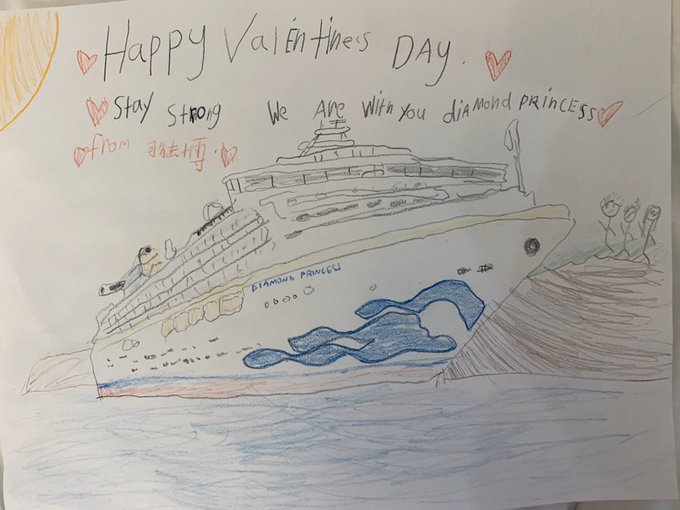 HAPPY Valentine's DAY.
Stay strong We Are with you diamond princess
from 博.
DIAMOND PRINCESS